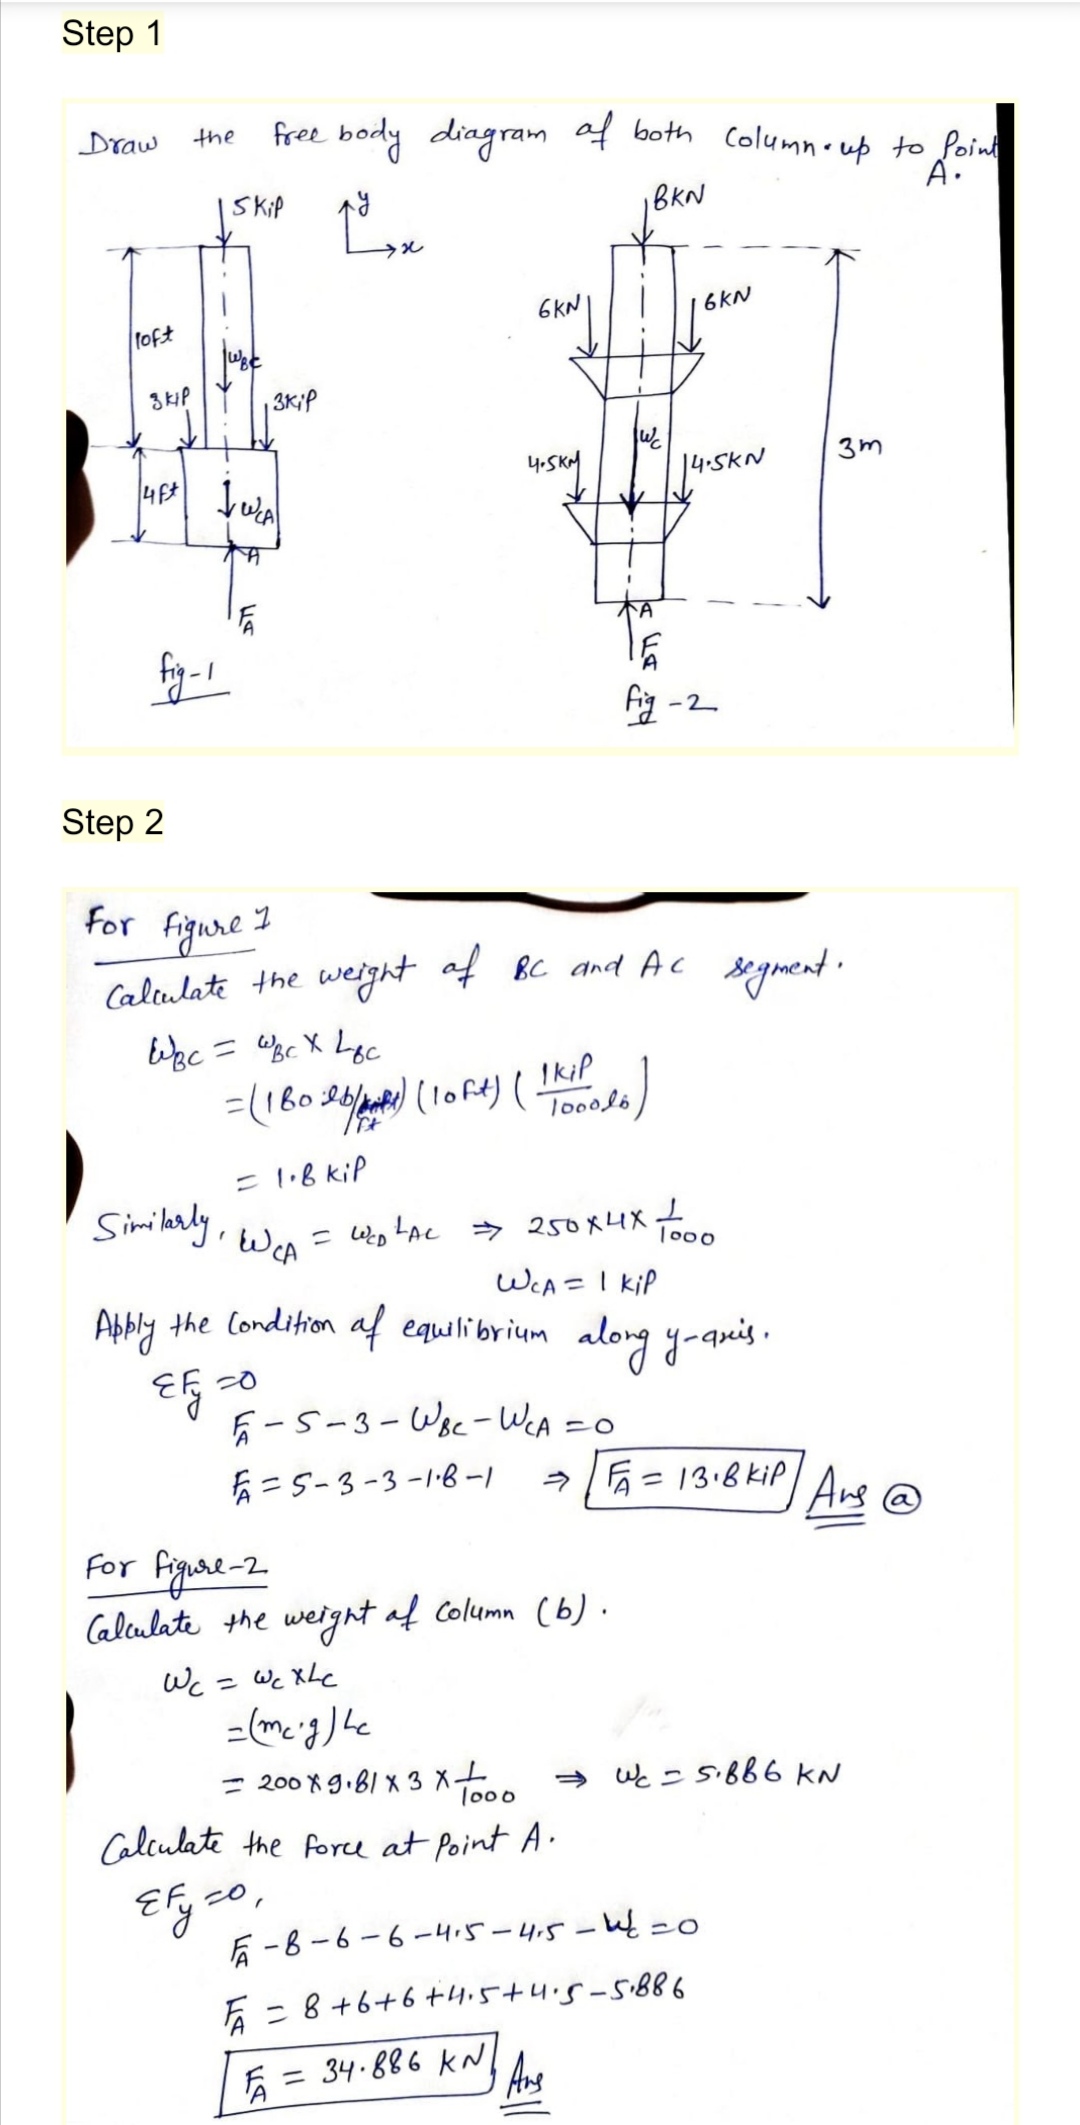 Step 1
Draw the free body diagram of both Column. up to Point A.
5Kip
y
x
8KN
6KN
6KN
10ft
WBC
3kip
3Kip
4.5KN
WC
4.5KN
3m
4ft
WCA
A
FA
A
FA
fig-1
fig-2
Step 2
For figure 1
Calculate the weight of BC and AC segment.
WBC = wBC X LBC
=(180 lb/ft) (10ft) (1kip/1000lb)
= 1.8 kip
Similarly, WCA = WCD LAC ⇒ 250X4X 1/1000
WCA = 1 kip
Apply the Condition of equilibrium along y-axis.
ΣFy =0
FA - 5 - 3 - WBC - WCA =0
FA = 5-3-3-1.8-1 ⇒ FA = 13.8 kip Ans (a)
For figure-2
Calculate the weight of Column (b).
WC = wC XLC
=(mC.g) LC
= 200X9.81X3X 1/1000 ⇒ WC = 5.886 KN
Calculate the force at Point A.
ΣFy =0,
FA -8-6-6-4.5-4.5-WC =0
FA = 8+6+6+4.5+4.5-5.886
FA = 34.886 KN Ans